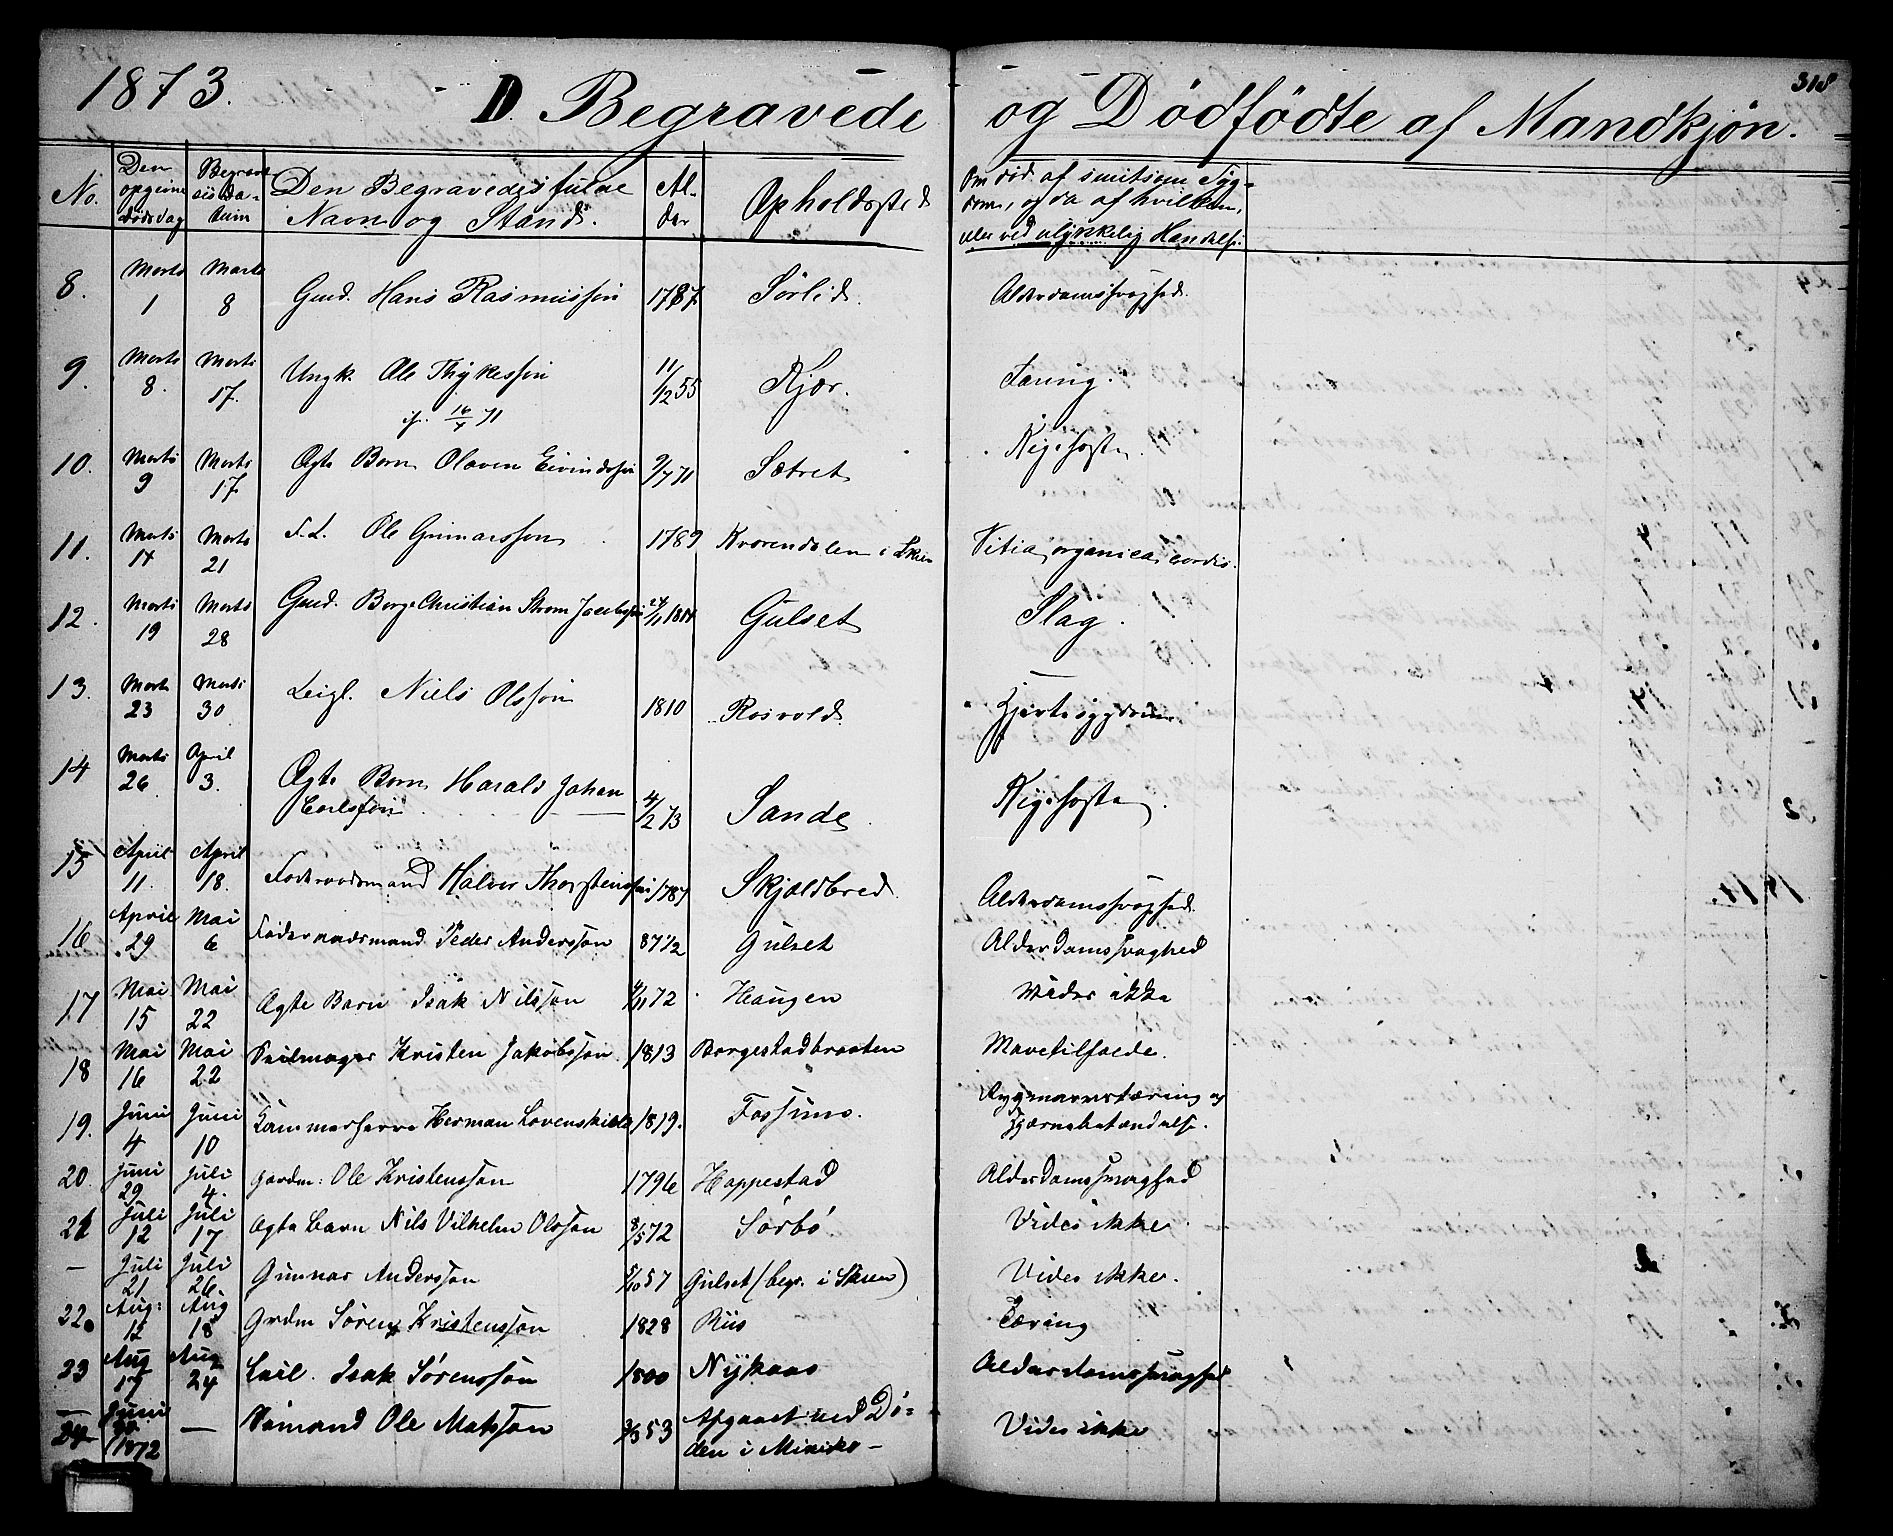 318
1873. D. Begravede og Dödfödte af Mandkjön.
No. Den opgivne Dödsdag Begravelsesdatum Den Begravedes fulde Navn og Stand. Alder Opholdssted Om död af smitsom Sygdom, og da af hvilken, eller ved ulykkelig Hændelse.
8. Marts 1 Marts 8 Gmd. Hans Rasmussön 1787. Sörlid. Alderdomssvaghed.
9. Marts 8. Marts 17. Ungk. Ole Thykessön 11/12 55 Kjær. Tæring.
16/4 71
10. Marts 9 Marts 17. Ægte Barn Olaven Eivindssön 9/4 71 Sætret Kighoste.
11. Marts 14 Marts 21 F.L. Ole Gunnarssön 1789 Kværendalen i Skien Vitia organica cordis.
12. Marts 19 Marts 28 Gmd. Borge Christian Strøm Jacobssön 24/11 Gulset Slag.
13. Marts 23 Marts 30 Leigl. Niels Olssön 1810 Rosvold Hjertesygdom
14 Marts 26 April 3. Ægte Barn Harald Johan Carlssön 4/2 73 Sande Kighoste.
15 April 11. April 18. Föderaadsmand Halvor Thorstenssön 1787 Skjældbred Alderdomssvaghed.
16 April 29 Mai 6 Födernaadsmand Peder Anderssön 87 1/2 Gulset Alderdomssvaghed
17 Mai 15 Mai 22 Ægte Barn Isak Nilssön 4/11 72 Haugen Vides ikke
18 Mai 16 Mai 22 Seilmager Kristen Jakobssön 1813 Borgestadbraaten Mavetilfælde.
19. Juni 4 Juni 10 Kammerherre Herman Løvenskiold 1819. Fossum. Rygmarvstæring og Hjernebetændelse.
20. Juni 29 Juli 4. Gardm. Ole Kristenssön 1796 Hoppestad Alderdomssvaghed
21 Juli 12 Juli 17 Ægte Barn Nils Vilhelm Olssön 8/5 72 Sørbö Vides ikke
— Juli 21 Juli 26 Gunnar Anderssön 5/10 57 Gulset (begr. i Skien) Vides ikke.
22. Aug. 12 Aug 18 Grdm Sören Kristenssön 1828 Riis Tæring
23 Aug 17 Aug 24 Leil. Isak Sørenssön 1800 Nykaas Alderdomssvaghed
— 24 Juni 1872 — Sømand Ole Matssön 53 Afgaaet ved Döden i Vides ikke